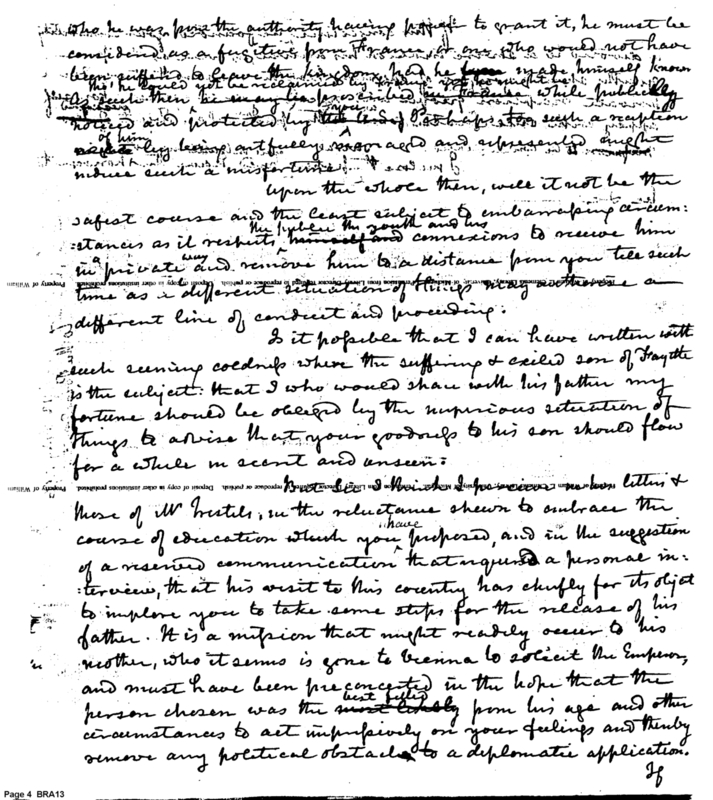 who he was from the authority having power to grant it, he must be
considered as a fugitive from France, or one who would not have
been suffered to leave the kingdom had he made himself known
this he could not be reclaimed by
As such then he may be proscribed in France while publickly
noticed and protected by Perhaps too such a reception
of him
by being artfully managed and represented might
induce such a misfortune!
Upon the whole then, will it not be the
safest course and the least subject to embarrassing circum:
the public the youth and his
:stances as it respects himself and connexions to receive him
way
in a private and remove him to a distance from you till such
time as a different situation of things may authorise a
different line of conduct and proceeding:
Is it possible that I can have written with
such seeming coldness where the suffering & exiled son of Fayette
is the subject: that I who would share with his father my
fortune should be obliged by the imperious situation of
things to advise that your goodness to his son should flow
for a while in secret and unseen:
But Sir, I think I perceive in his letters &
those of Mr Frestels, in the reluctance shewn to embrace the
have
course of education which you proposed, and in the suggestion
of a reserved communication that required a personal in:
:terview, that his visit to this country has chiefly for its object
to implore you to take some steps for the release of his
father. It is a mission that might readily occur to his
mother, who it seems is gone to Vienna to solicit the Emperor,
and must have been preconcerted in the hope that the
best fitted
person chosen was the most likely from his age and other
circumstances to act impulsively on your feelings and thereby
remove any political obstacle to a diplomatic application.
If
Page 4 BRA13